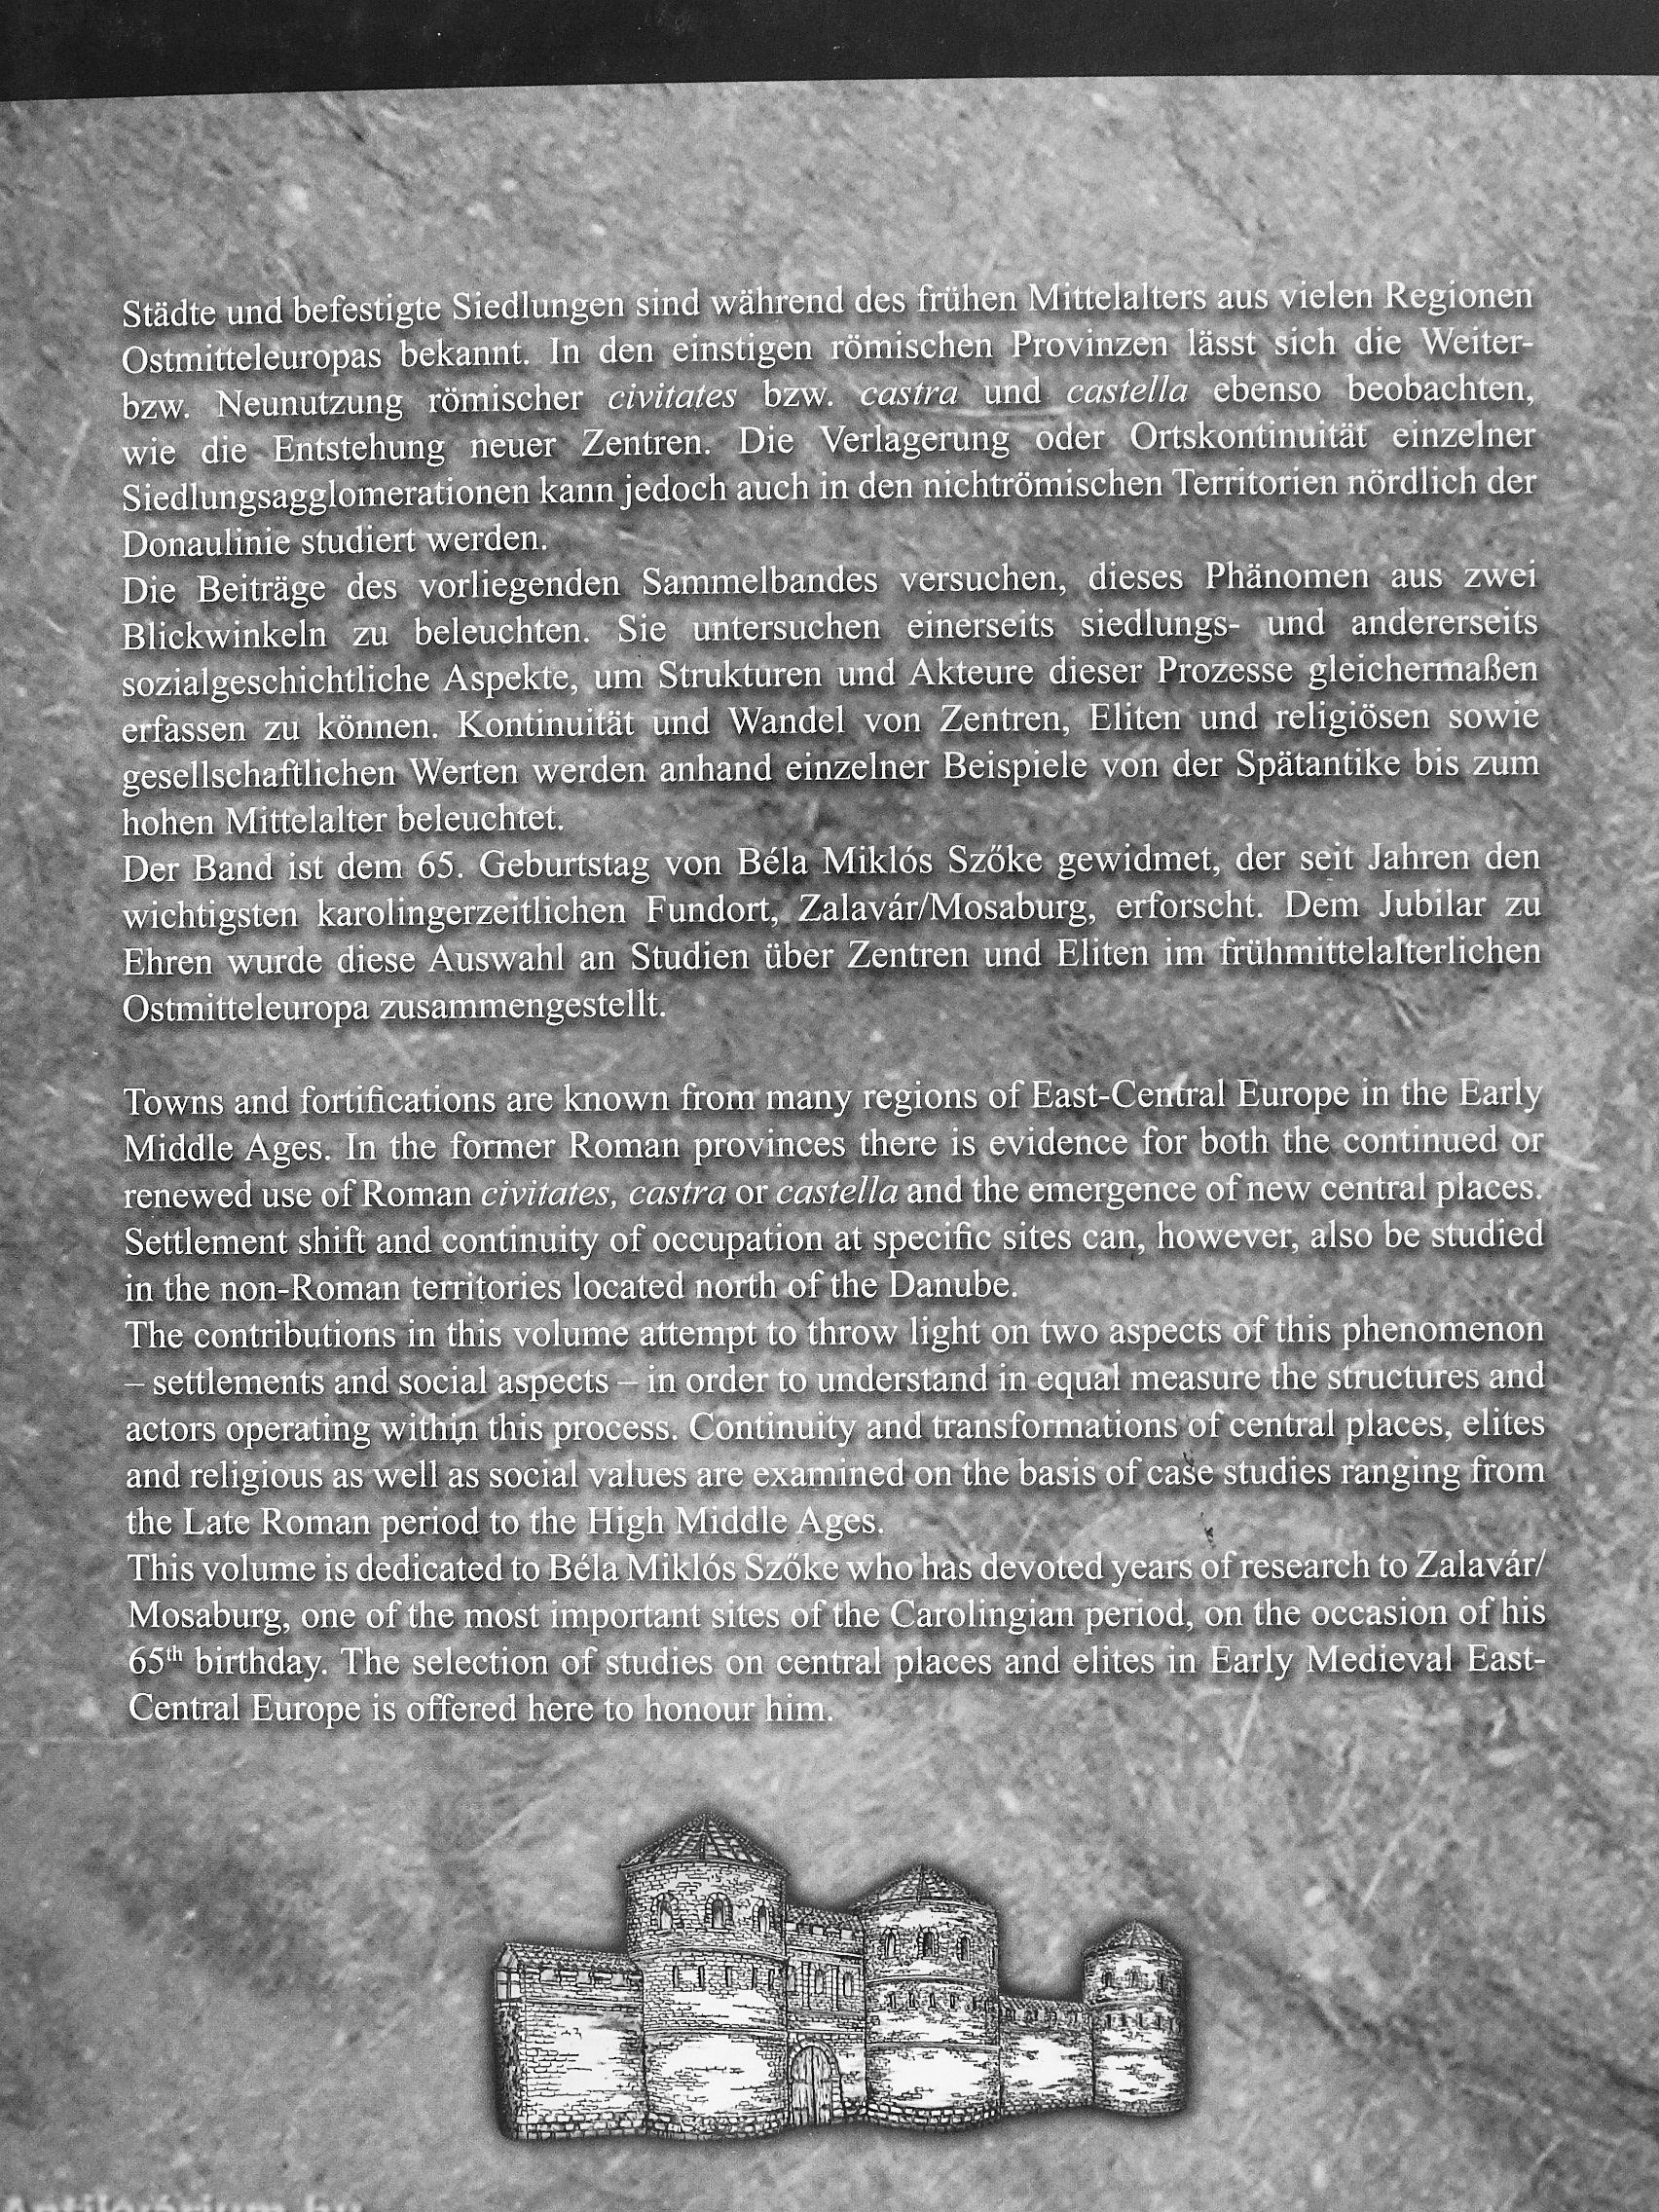 Städte und befestigte Siedlungen sind während des frühen Mittelalters aus vielen Regionen
Ostmitteleuropas bekannt. In den einstigen römischen Provinzen lässt sich die Weiter-
bzw. Neunutzung römischer civitates bzw. castra und castella ebenso beobachten,
wie die Entstehung neuer Zentren. Die Verlagerung oder Ortskontinuität einzelner
Siedlungsagglomerationen kann jedoch auch in den nichtrömischen Territorien nördlich der
Donaulinie studiert werden.
Die Beiträge des vorliegenden Sammelbandes versuchen, dieses Phänomen aus zwei
Blickwinkeln zu beleuchten. Sie untersuchen einerseits siedlungs- und andererseits
sozialgeschichtliche Aspekte, um Strukturen und Akteure dieser Prozesse gleichermaßen
erfassen zu können. Kontinuität und Wandel von Zentren, Eliten und religiösen sowie
gesellschaftlichen Werten werden anhand einzelner Beispiele von der Spätantike bis zum
hohen Mittelalter beleuchtet.
Der Band ist dem 65. Geburtstag von Béla Miklós Szőke gewidmet, der seit Jahren den
wichtigsten karolingerzeitlichen Fundort, Zalavár/Mosaburg, erforscht. Dem Jubilar zu
Ehren wurde diese Auswahl an Studien über Zentren und Eliten im frühmittelalterlichen
Ostmitteleuropa zusammengestellt.
Towns and fortifications are known from many regions of East-Central Europe in the Early
Middle Ages. In the former Roman provinces there is evidence for both the continued or
renewed use of Roman civitates, castra or castella and the emergence of new central places.
Settlement shift and continuity of occupation at specific sites can, however, also be studied
in the non-Roman territories located north of the Danube.
The contributions in this volume attempt to throw light on two aspects of this phenomenon
– settlements and social aspects – in order to understand in equal measure the structures and
actors operating within this process. Continuity and transformations of central places, elites
and religious as well as social values are examined on the basis of case studies ranging from
the Late Roman period to the High Middle Ages.
This volume is dedicated to Béla Miklós Szőke who has devoted years of research to Zalavár/
Mosaburg, one of the most important sites of the Carolingian period, on the occasion of his
65th birthday. The selection of studies on central places and elites in Early Medieval East-
Central Europe is offered here to honour him.